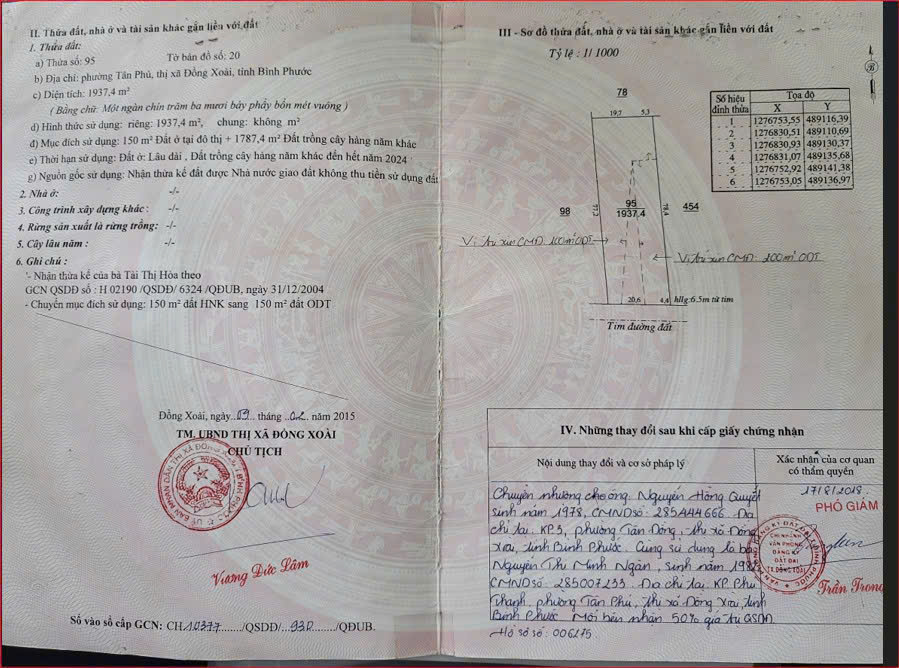 II. Thửa đất, nhà ở và tài sản khác gắn liền với đất
1. Thửa đất:
a) Thửa số: 95 Tờ bản đồ số: 20
b) Địa chỉ: phường Tân Phú, thị xã Đồng Xoài, tỉnh Bình Phước
c) Diện tích: 1937,4 m²
( Bằng chữ: Một ngàn chín trăm ba mươi bảy phẩy bốn mét vuông )
d) Hình thức sử dụng: riêng: 1937,4 m², chung: không m²
đ) Mục đích sử dụng: 150 m² Đất ở tại đô thị + 1787,4 m² Đất trồng cây hàng năm khác
e) Thời hạn sử dụng: Đất ở: Lâu dài , Đất trồng cây hàng năm khác đến hết năm 2024
g) Nguồn gốc sử dụng: Nhận thừa kế đất được Nhà nước giao đất không thu tiền sử dụng đất
2. Nhà ở: -/-
3. Công trình xây dựng khác : -/-
4. Rừng sản xuất là rừng trồng: -/-
5. Cây lâu năm : -/-
6. Ghi chú :
'- Nhận thừa kế của bà Tài Thị Hòa theo
GCN QSDĐ số : H 02190 /QSDĐ/ 6324 /QĐUB, ngày 31/12/2004
- Chuyển mục đích sử dụng: 150 m² đất HNK sang 150 m² đất ODT
Đồng Xoài, ngày..09..tháng..02..năm 2015
TM. UBND THỊ XÃ ĐỒNG XOÀI
CHỦ TỊCH
Vương Đức Lâm
Số vào sổ cấp GCN: CH10377....../QSDĐ/..930......../QĐUB.
III - Sơ đồ thửa đất, nhà ở và tài sản khác gắn liền với đất
Tỷ lệ : 1/ 1000
78
19,7 5,3
95
1937,4
98
77,2
454
78,4
Vị trí xin CMĐ: 100m² ODT
Vị trí xin CMĐ: 200m² ODT
20,6 4,4
hllg:6.5m từ tim
Tim đường đất
Số hiệu đỉnh thửa Tọa độ
X Y
1 1276753,55 489116,39
2 1276830,51 489110,69
3 1276830,93 489130,37
4 1276831,07 489135,68
5 1276752,92 489141,38
6 1276753,05 489136,97
IV. Những thay đổi sau khi cấp giấy chứng nhận
Nội dung thay đổi và cơ sở pháp lý
Xác nhận của cơ quan
có thẩm quyền
Chuyển nhượng cho ông. Nguyễn Hồng Quyết
sinh năm 1978, CMND số: 285444666. Địa
chỉ tại: KP.3, phường Tân Đồng, thị xã Đồng
Xoài, tỉnh Bình Phước. Cùng sử dụng là bà
Nguyễn Thị Minh Ngân, sinh năm
CMND số: 285007233. Địa chỉ tại: KP. Phú
Thanh, phường Tân Phú, thị xã Đồng Xoài, tỉnh
Bình Phước. Mỗi bên nhận 50% giá trị QSDĐ.
Hồ sơ số: 006275
17/8/2018.
PHÓ GIÁM
CHI NHÁNH
VĂN PHÒNG
ĐĂNG KÝ
ĐẤT ĐAI
TX.ĐỒNG XOÀI
Trần Trọng